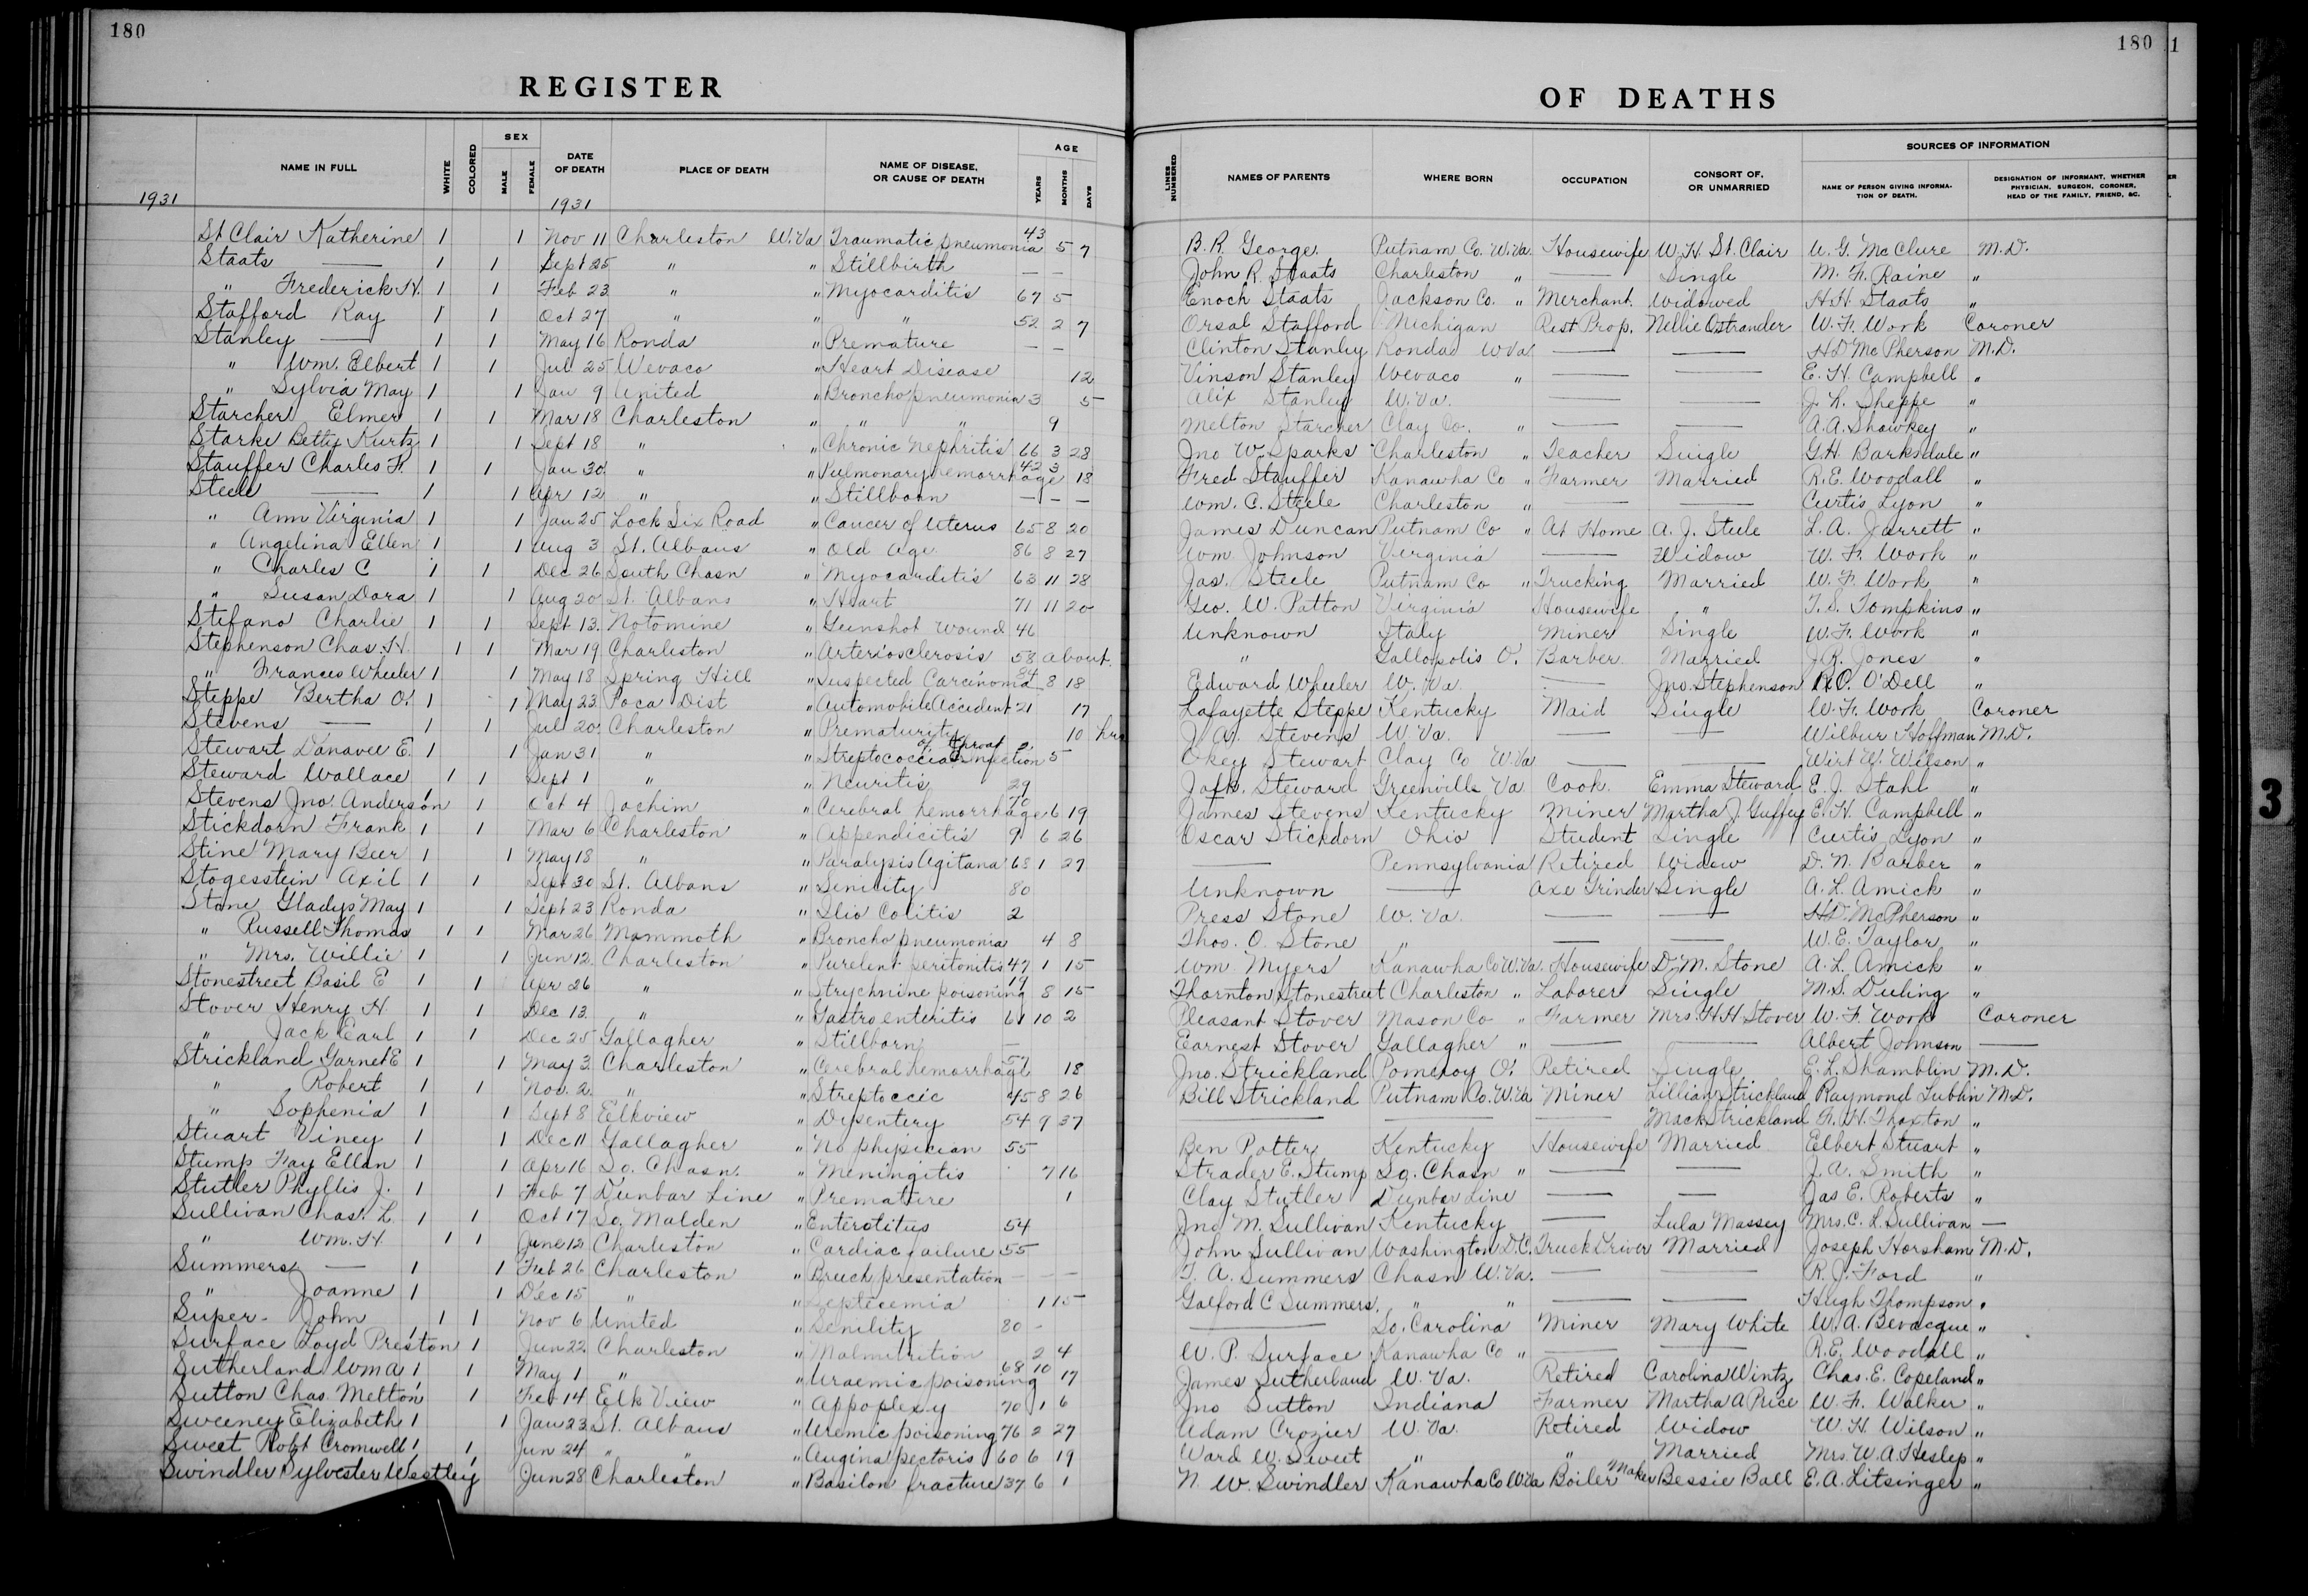 180
180
1
REGISTER
OF DEATHS
NAME IN FULL WHITE COLORED SEX MALE FEMALE DATE OF DEATH PLACE OF DEATH NAME OF DISEASE, OR CAUSE OF DEATH AGE YEARS MONTHS DAYS LINES NUMBERED NAMES OF PARENTS WHERE BORN OCCUPATION CONSORT OF, OR UNMARRIED SOURCES OF INFORMATION NAME OF PERSON GIVING INFORMATION OF DEATH. DESIGNATION OF INFORMANT, WHETHER PHYSICIAN, SURGEON, CORONER, HEAD OF THE FAMILY, FRIEND, &C.
1931 1931
St Clair Katherine 1 1 Nov 11 Charleston W.Va Traumatic pneumonia 43 5 7 B.R. George Putnam Co. W.Va. Housewife W.H. St. Clair U.G. McClure M.D.
Staats — 1 1 Sept 25 " " Stillbirth — — John R. Staats Charleston " — Single M. F. Raine "
" Frederick H. 1 1 Feb 23 " " Myocarditis 67 5 Enoch Staats Jackson Co. " Merchant Widowed H.H. Staats "
Stafford Ray 1 1 Oct 27 " " " 52 2 7 Orsal Stafford Michigan Rest. Prop. Nellie Ostrander W. F. Work Coroner
Stanley — 1 1 May 16 Ronda " Premature — — Clinton Stanley Ronda W Va. — — H D McPherson M.D.
" Wm. Elbert 1 1 Jul 25 Wevaco " Heart Disease 12 Vinson Stanley Wevaco " — — E. H. Campbell "
" Sylvia May 1 1 Jan 9 United " Bronchopneumonia 3 5 Alix Stanley W.Va. — — J. L. Sheppe "
Starcher Elmer 1 1 Mar 18 Charleston " " " 9 Melton Starcher Clay Co. " — — A.A. Shawkey "
Starke Betty Kurtz 1 1 Sept 18 " " Chronic Nephritis 66 3 28 Jno W. Sparks Charleston " Teacher Single G.H. Barksdale "
Stauffer Charles F. 1 1 Jan 30 " " Pulmonary hemorrhage 42 3 18 Fred Stauffer Kanawha Co " Farmer Married R.E. Woodall "
Steele — 1 1 Apr 12 " " Stillborn — — — Wm. C. Steele Charleston " — — Curtis Lyon "
" Ann Virginia 1 1 Jan 25 Lock Six Road " Cancer of Uterus 65 8 20 James Duncan Putnam Co " At Home A. J. Steele L. A. Jarrett "
" Angelina Ellen 1 1 Aug 3 St. Albans " Old Age 86 8 27 Wm. Johnson Virginia — Widow W. F. Work "
" Charles C 1 1 Dec 26 South Chasn " Myocarditis 63 11 28 Jas. Steele Putnam Co " Trucking Married W. F. Work "
" Susan Dora 1 1 Aug 20 St. Albans " Heart 71 11 20 Geo. W. Patton Virginia Housewife " T.S. Tompkins "
Stefano Charlie 1 1 Sept 13 Notomine " Gunshot wound 46 Unknown Italy Miner Single W. F. Work "
Stephenson Chas. H. 1 1 Mar 19 Charleston " Arteriosclerosis 58 about " Gallopolis O. Barber Married J.R. Jones "
" Frances Wheeler 1 1 May 18 Spring Hill " Suspected Carcinoma 84 8 18 Edward Wheeler W. Va. — Jno. Stephenson O'Dell "
Steppe Bertha O. 1 1 May 23 Poca Dist " Automobile Accident 21 17 Lafayette Steppe Kentucky Maid Single W. F. Work Coroner
Stevens — 1 1 Jul 20 Charleston " Prematurity 10 hrs J. A. Stevens W. Va. — — Wilbur Hoffman M.D.
Stewart Danavee E. 1 1 Jan 31 " " Streptococcia Infection of throat 2 5 Okey Stewart Clay Co W.Va — — Wirt W. Wilson "
Steward Wallace 1 1 Sept 1 " " Neuritis 29 Jack Steward Greenville Va Cook Emma Steward E. J. Stahl "
Stevens Jno. Anderson 1 1 Oct 4 Jochim " Cerebral hemorrhage 70 6 19 James Stevens Kentucky Miner Martha J. Guffey E. H. Campbell "
Stickdorn Frank 1 1 Mar 6 Charleston " Appendicitis 9 6 26 Oscar Stickdorn Ohio Student Single Curtis Lyon "
Stine Mary Beer 1 1 May 18 " " Paralysis Agitana 68 1 27 — Pennsylvania Retired Widow D. N. Barber "
Stogesstein Axil 1 1 Sept 30 St. Albans " Senility 80 Unknown — Axe Grinder Single A. L. Amick "
Stone Gladys May 1 1 Sept 23 Ronda " Ilio Colitis 2 Press Stone W. Va. — — H D McPherson "
" Russell Thomas 1 1 Mar 26 Mammoth " Bronchopneumonia 4 8 Thos. O. Stone " — — W.E. Taylor "
" Mrs. Willie 1 1 Jun 12 Charleston " Purelent peritonitis 47 1 15 Wm. Myers Kanawha Co W.Va. Housewife D.M. Stone A. L. Amick "
Stonestreet Basil E 1 1 Apr 26 " " Strychnine poisoning 17 8 15 Thornton Stonestreet Charleston " Laborer Single M.S. Duling "
Stover Henry H. 1 1 Dec 13 " " Gastro enteritis 61 10 2 Pleasant Stover Mason Co " Farmer Mrs. H H Stover W. F. Work Coroner
" Jack Earl 1 1 Dec 25 Gallagher " Stillborn — Earnest Stover Gallagher " — — Albert Johnson —
Strickland Garnet E 1 1 May 3 Charleston " Cerebral hemorrhage 57 18 Jno. Strickland Pomeroy O. Retired Single E. L. Shamblin M.D.
" Robert 1 1 Nov. 2 " " Streptoccic 45 8 26 Bill Strickland Putnam Co. W.Va Miner Lillian Strickland Raymond Lublin M.D.
" Sophenia 1 1 Sept 8 Elkview " Dysentery 54 9 37 — — Mack Strickland F. H. Thaxton "
Stuart Viney 1 1 Dec 11 Gallagher " No physician 55 Ben Potter Kentucky Housewife Married Elbert Stuart "
Stump Fay Ellan 1 1 Apr 16 So. Chasn. " Meningitis 7 16 Strader E. Stump So. Chasn " — — J. A. Smith "
Stutler Phyllis J. 1 1 Feb 7 Dunbar Line " Premature 1 Clay Stutler Dunbar Line — — Jas E. Roberts "
Sullivan Chas. L. 1 1 Oct 17 So. Malden " Enterotitus 54 Jno M. Sullivan Kentucky — Lula Massey Mrs. C. L. Sullivan —
" Wm. H. 1 1 June 12 Charleston " Cardiac failure 55 John Sullivan Washington D.C. Truck Driver Married Joseph Horsham M.D.
Summers — 1 1 Feb 26 Charleston " Breech presentation — — — T. A. Summers Chasn W.Va. — — R. J. Ford "
" Joanne 1 1 Dec 15 " " Septicemia 1 15 Galford C Summers " " — — Hugh Thompson "
Super- John 1 1 Nov 6 United " Senility 80 - — So. Carolina Miner Mary White W. A. Bevacque "
Surface Loyd Preston 1 1 Jun 22 Charleston " Malnutrition 2 4 W. P. Surface Kanawha Co " — — R.E. Woodall "
Sutherland Wm A 1 1 May 1 " " Uraemic poisoning 68 10 17 James Sutherland W. Va. Retired Carolina Wintz Chas. E. Copeland "
Sutton Chas. Melton 1 1 Feb 14 Elk View " Appoplexy 70 1 6 Jno Sutton Indiana Farmer Martha A Price W. F. Walker "
Sweeney Elizabeth 1 1 Jan 23 St. Albans " Uremic poisoning 76 2 27 Adam Crozier W. Va. Retired Widow W. H. Wilson "
Sweet Robt Cromwell 1 1 Jun 24 " " " Angina pectoris 60 6 19 Ward W. Sweet " " Married Mrs. W. A. Heslep "
Swindler Sylvester Westley Jun 28 Charleston " Basilon fracture 37 6 1 N. W. Swindler Kanawha Co W.Va Boiler Maker Bessie Ball E. A. Litsinger "
3